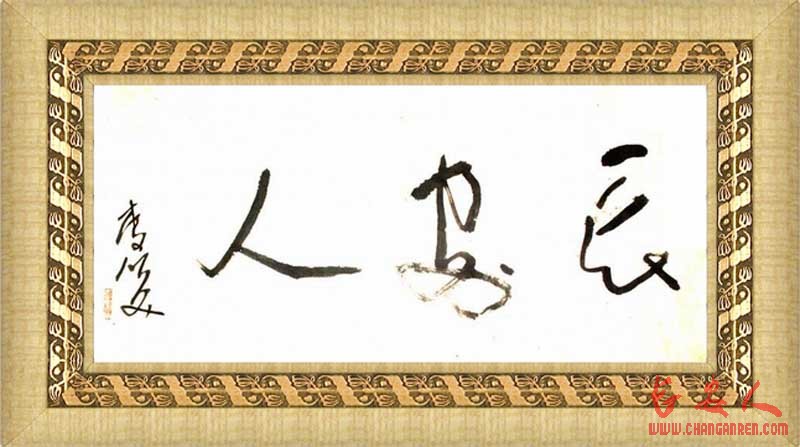 长安人
长安人
WWW.CHANGANREN.COM